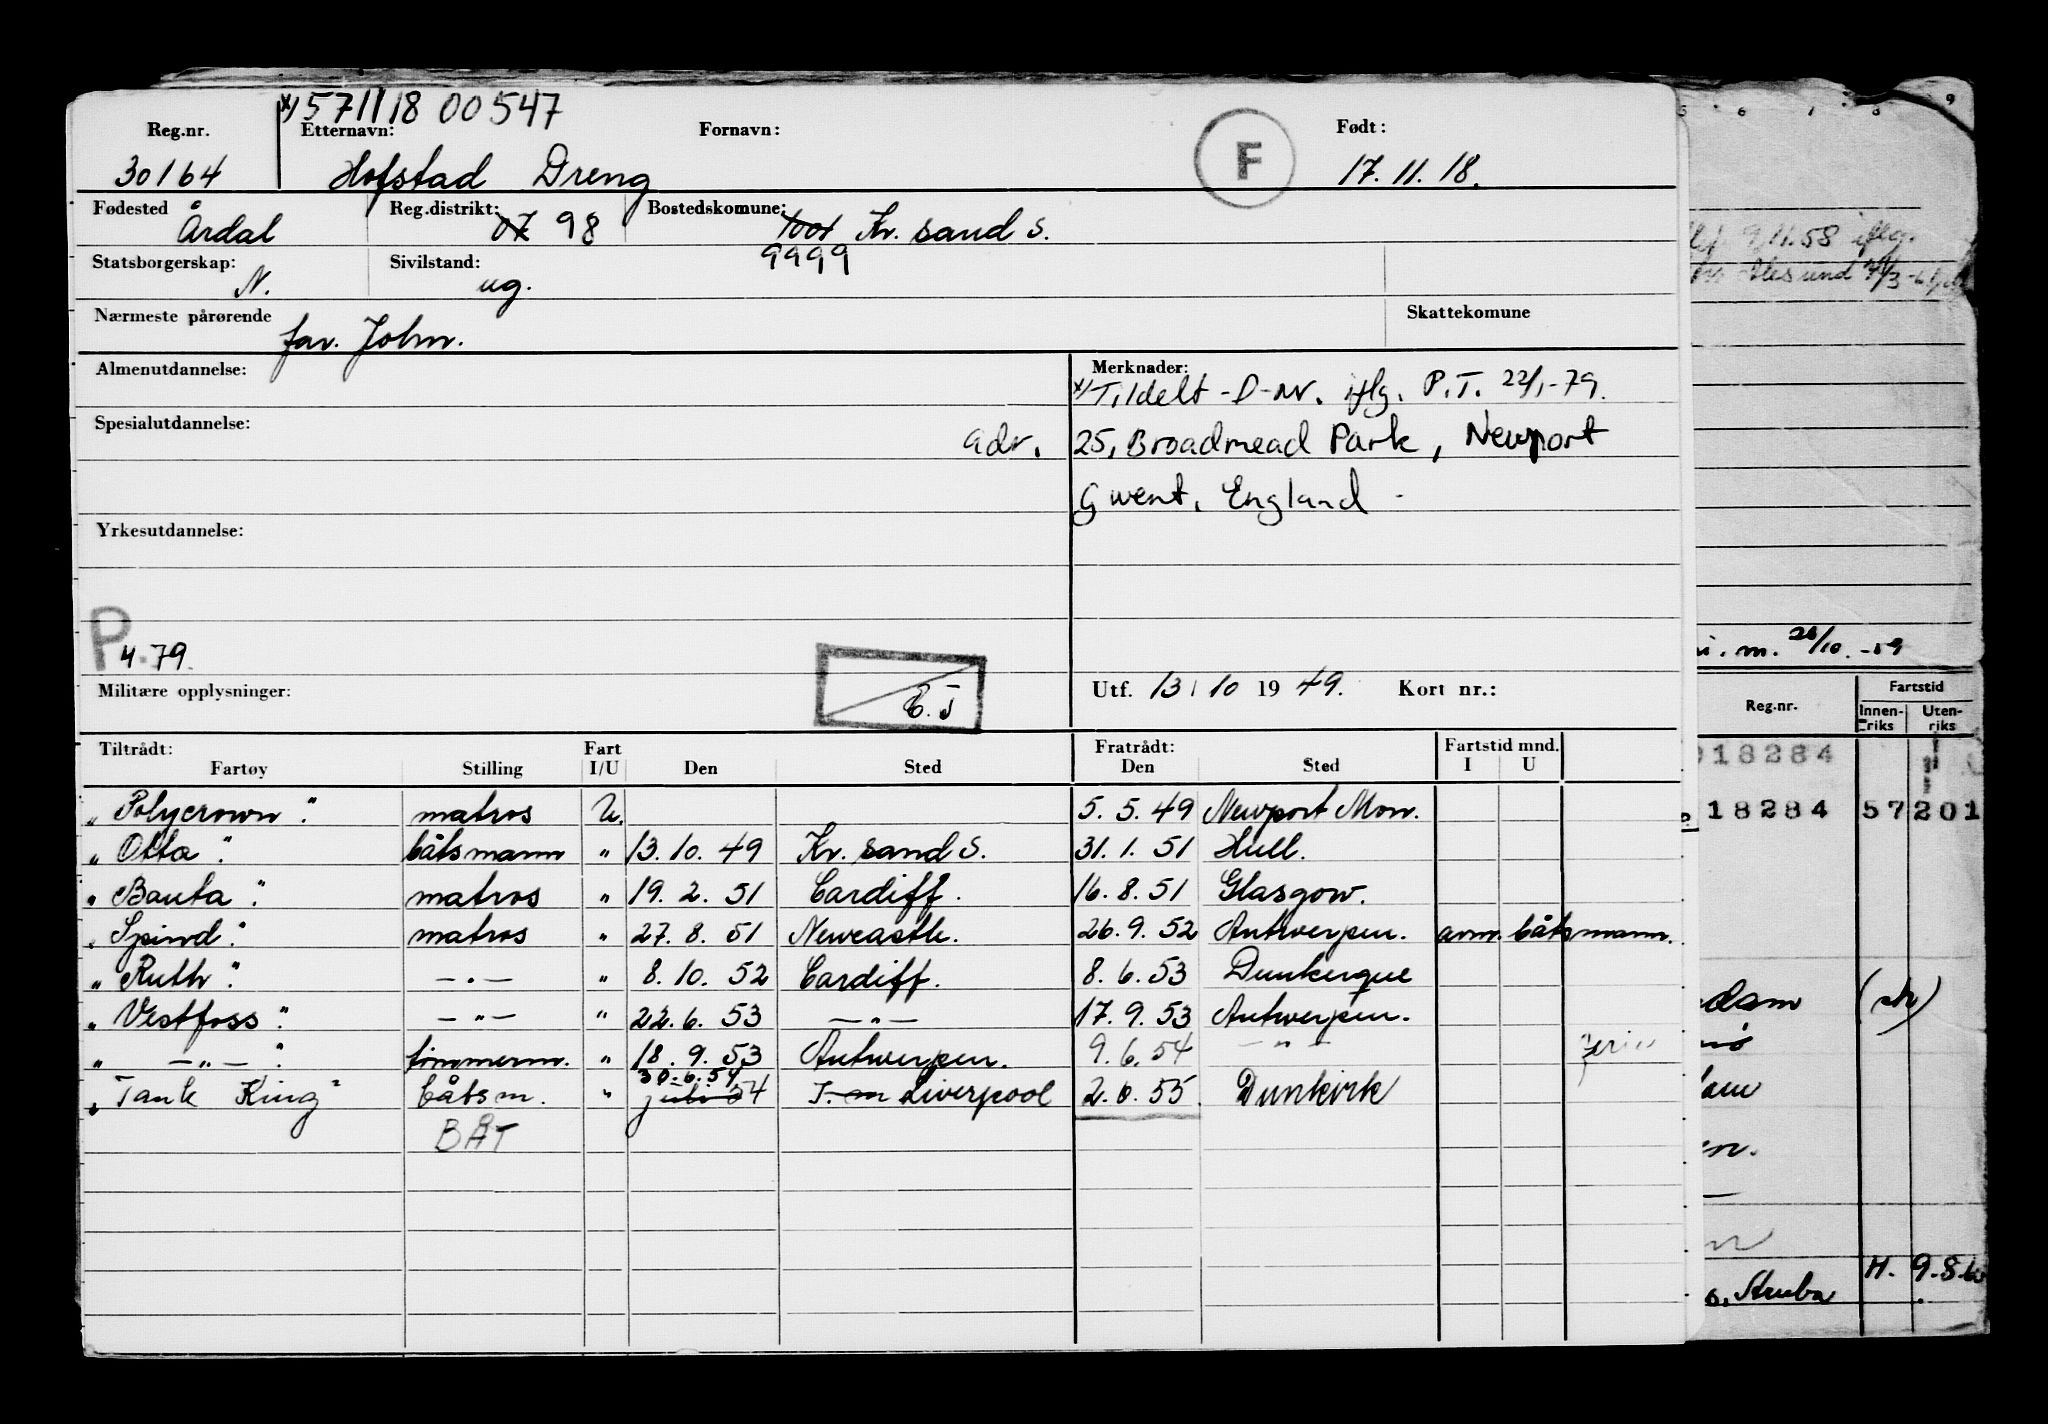 x) 571118 00547
Reg.nr. Etternavn: Fornavn: F Født:
30164 Hofstad Dreng 17.11.18.
Fødested Årdal Reg.distrikt: 07 98 Bostedskomune: 1001 Kr. sand S.
9999
Statsborgerskap: N. Sivilstand: ug.
Nærmeste pårørende far. John. Skattekomune
Almenutdannelse: Merknader:
x) Tildelt -D-nr. iflg. P.T. 22/1-79.
Spesialutdannelse: adr. 25, Broadmead Park, Newport
Gwent, England -
Yrkesutdannelse:
P 4.79.
Militære opplysninger: Utf. 13/10 19 49. Kort nr.:
Tiltrådt: Fart Fratrådt: Fartstid mnd.
Fartøy Stilling I/U Den Sted Den Sted I U
"Polycrown" matros U. 5.5.49 Newport Mon.
"Otta" båtsmann " 13.10.49 Kr. sand S. 31.1.51 Hull.
"Bauta" matros " 19.2.51 Cardiff. 16.8.51 Glasgow.
"Spind" matros " 27.8.51 Newcastle. 26.9.52 Antwerpen. anm. båtsmann.
"Ruth" -"- " 8.10.52 Cardiff. 8.6.53 Dunkerque
"Vestfoss" -"- " 22.6.53 -"- 17.9.53 Antwerpen.
" -"- " tømmerm. " 18.9.53 Antwerpen. 9.6.54 -"- ferie
30.6.54
"Tank King" båtsm. " juli 54 Liverpool 2.8.55 Dunkirk
BÅT
5 6 7 8 9
9/11.58 iflg.
Ålesund
i.m. 28/10.-59
Reg.nr. Fartstid
Innenriks Utenriks
018284
18284 57 201
dam (str)
dam
en.
Aruba H. 9.8.60